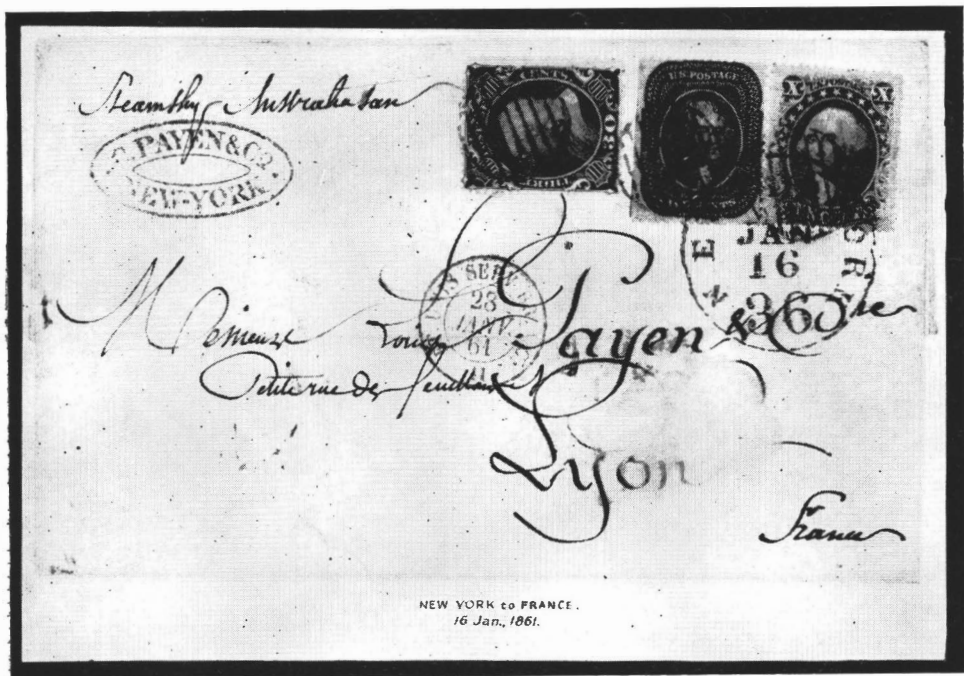 Steamship Australasian
PAYEN & Co.
NEW-YORK.
CENTS
30
U.S. POSTAGE
X X
JAN
16
36
NEW YORK
SERV.
28
JANV.
61
Monsieur Louis Payen & Cie
Petite rue des feuillants
Lyon
France
NEW YORK to FRANCE.
16 Jan., 1861.